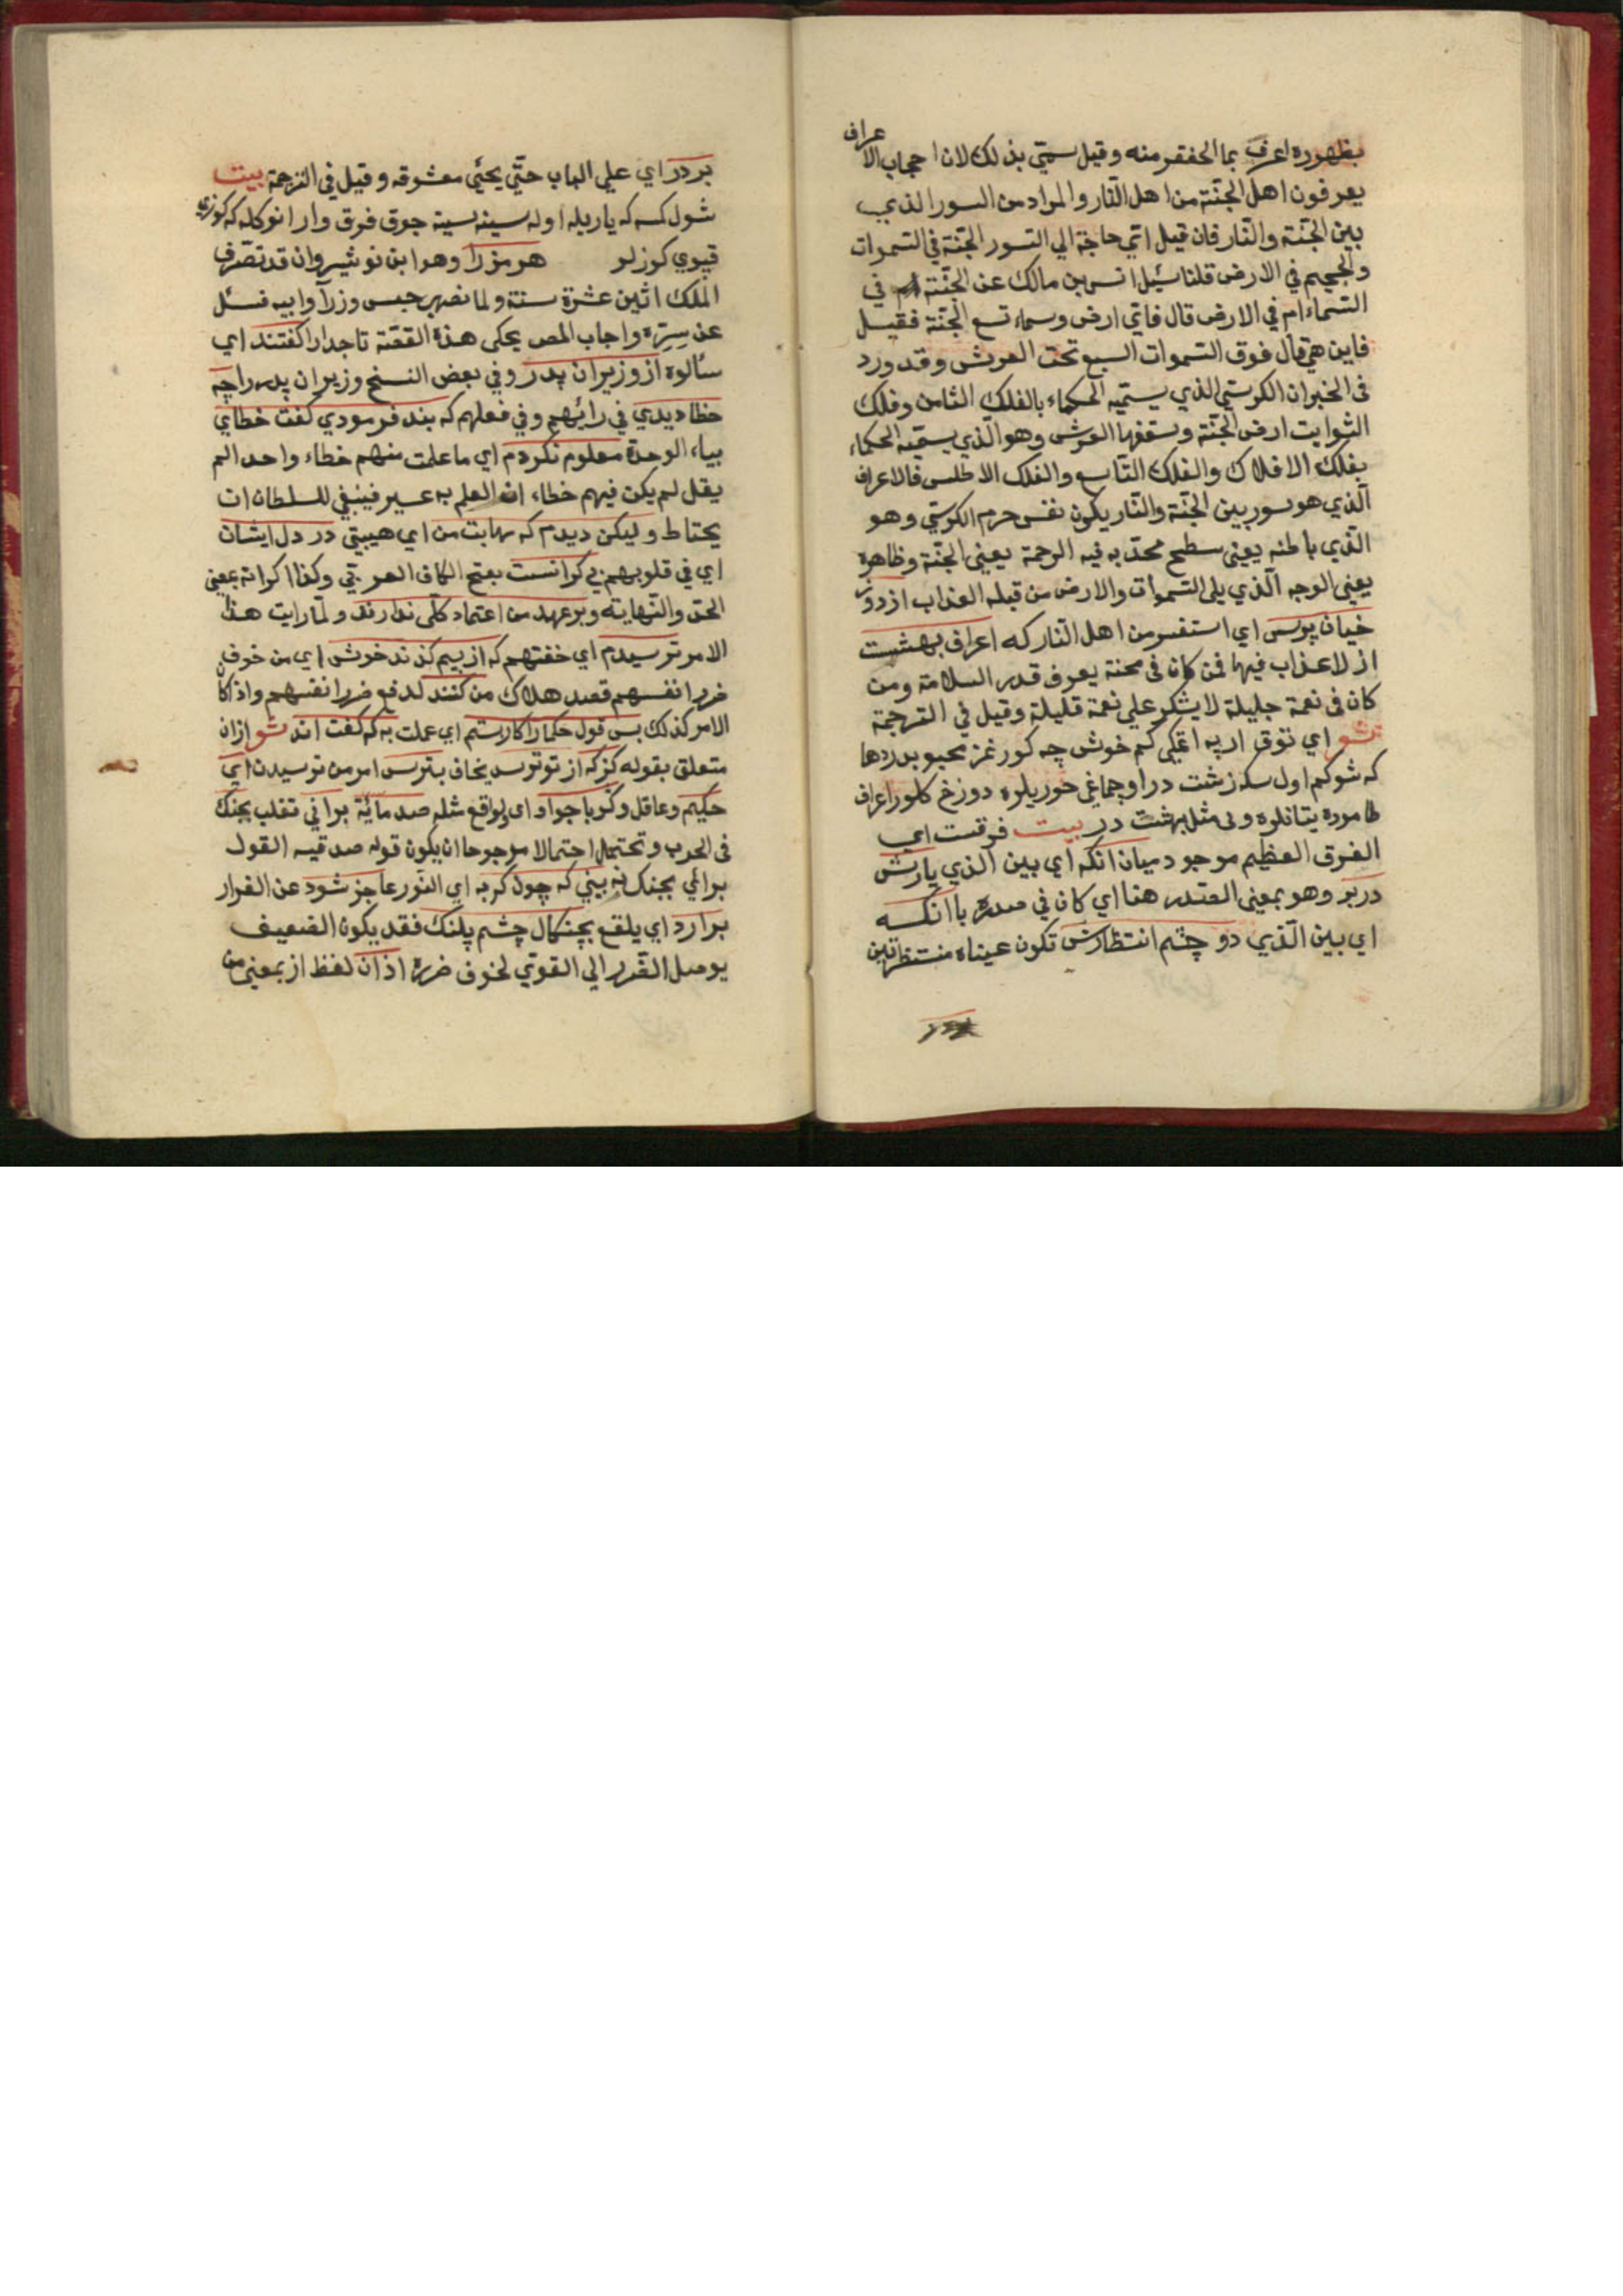 بظهوره اعرف بما الحفقر منه وقيل سمّي بذلك لان اصحاب الاعراف
يعرفون اهل الجنّة من اهل النّار والمراد من السور الذي
بين الجنّة والنّار فان قيل ايّ حاجة الي السّور الجنّة في السّموات
والجحيم في الارض قلنا سُئل انس بن مالك عن الجنّة في
السّماء ام في الارض قال فايّ ارض وسماء تسع الجنّة فقيل
فاين هي قال فوق السّموات السبع تحت العرش وقد ورد
في الخبر ان الكرسيّ الذي يسمّيه الحكماء بالفلك الثامن وفلك
الثوابت ارض الجنّة وسقفها العرش وهو الّذي يسمّيه الحكماء
بفلك الافلاك والفلك التّاسع والفلك الاطلس فالاعراف
الّذي هو سور بين الجنّة والنّار يكون نفس جرم الكرسيّ وهو
الّذي باطنه يعني سطح محدّبه فيه الرحمة يعني الجنّة وظاهره
يعني الوجه الّذي يلي السّموات والارض من قبله العذاب از دوز
خيان پرس اي استفسر من اهل النّار كه اعراف بهشت
از لا عذاب فيها فمن كان في محنة يعرف قدر السلامة ومن
كان في نعمة جليلة لا يشكر علي نعمة قليلة وقيل في التّرجمة
شعر اي توق اربه اتمكي كم خوش چه كورنمز محبوبدرها
كه شوكم اول سكه زشت در اوجماغي حوريلره دوزخ كلور اعراف
طاموده يتانلره وني مثل بهشت در بيت فرقست اي
الفرق العظيم موجود ميان آنكه اي بين الّذي يارش
دربر وهو بمعني الصّدر هنا اي كان في صدره با آنكه
اي بين الّذي دو چشم انتظارش تكون عيناه منتظرتين
بر در اي علي الباب حتّي يحئي معشوقه وقيل في الترجمة بيت
شول كسه كه ياريله اوله سينه بسينه چوق فرق وار انوكله كه كوزي
قپوي كوزلر هرمز را وهو ابن نوشيروان قد تصرّف
الملك اثنين عشرة سنة ولما نصب حبس وزرآء ابيه فسئل
عن سرّه واجاب المص يحكي هذه القصّة تاجدار را كفتند اي
سألوه از وزيران پدر وفي بعض النسخ وزيران پدر را چه
خطا ديدي في رأيهم وفي فعلهم كه بند فرمودي كفت خطايي
بياء الوحدة معلوم نكردم اي ما علمت منهم خطاء واحدا لم
يقل لم يكن فيهم خطاء اذ العلم به عسير فينبغي للسلطان ان
يحتاط وليكن ديدم كه مهابت من اي هيبتي در دل ايشان
اي في قلوبهم بي كرانست بفتح الكاف العربيّ وكذا كرانه بمعني
الحدّ والنّهاية وبر عهد من اعتماد كلّي ندارند ولمّا رايت هذا
الامر ترسيدم اي خفتهم كه از بيم كزند خويش اي من خوف
ضرر انفسهم قصد هلاك من كنند لدفع ضرر انفسهم واذا كان
الامر كذلك پس قول حكما را كار بستم اي عملت به كه كفت اند شعر از ان
متعلق بقوله كز كه از تو ترسد يخاف بترس امر من ترسيدن اي
حكيم وعاقل وكر با چو او اي لو اقع مثله صد مائة بر آئي تغلب بجنك
في الحرب وتحتمل احتمالا مرجوحا ان يكون قوله صد قيد القول
بر آئي بجنك نه بيني كه چون كربه اي السّنّور عاجز شود عن الفرار
بر آرد اي يقلع بچنكال چشم پلنك فقد يكون الضعيف
يوصل الضّرر الي القويّ لخوف ضرره از آن لفظ از بمعني من